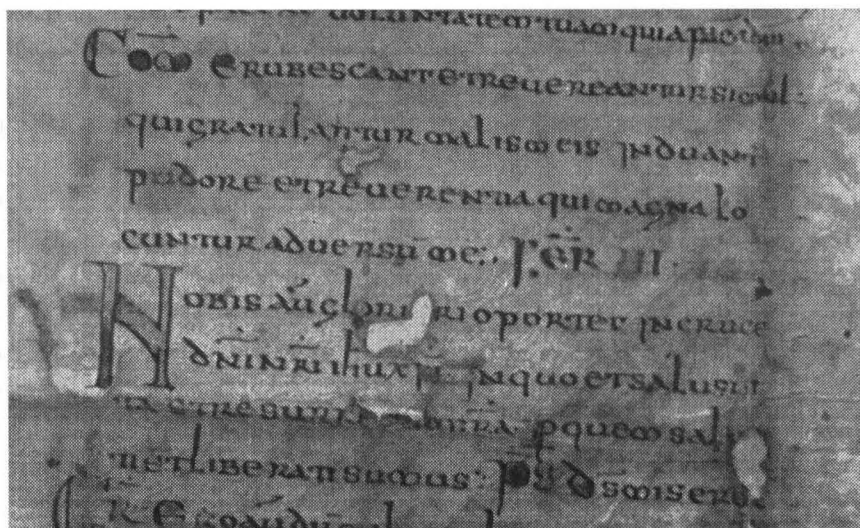 uoluntatem tuam quia
Com erubescant et reuereantur simul:
qui gratulantur malis meis induant
pudore et reuerentia qui magna lo
cuntur aduersū me:. FER III.
Nobis aū glori ri oportet in cruce
dn̄i nr̄i ihu xp̄i in quo et salus uit
et resurre nr̄a p quem sal
et liberati sumus: ps ds misere